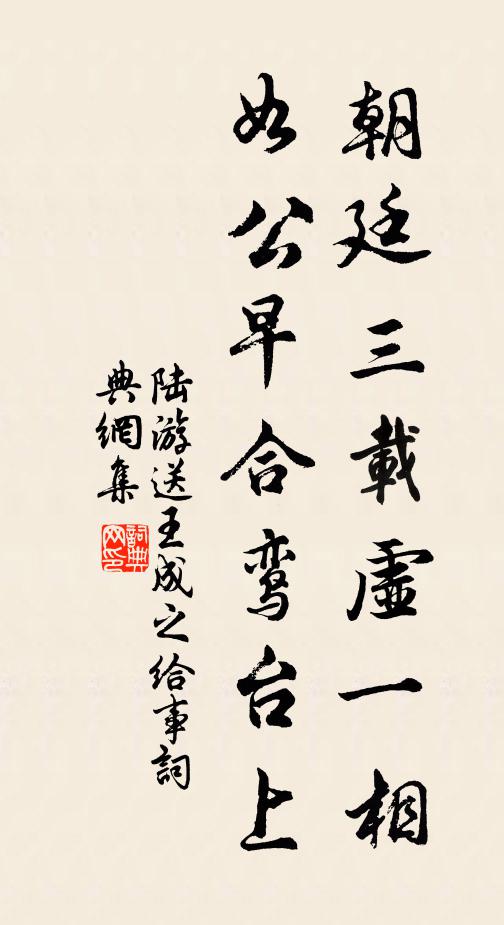 朝廷三載虛一相
如公早合鸾台上
陆游送王成之给事詞
典網集
詞典
网印